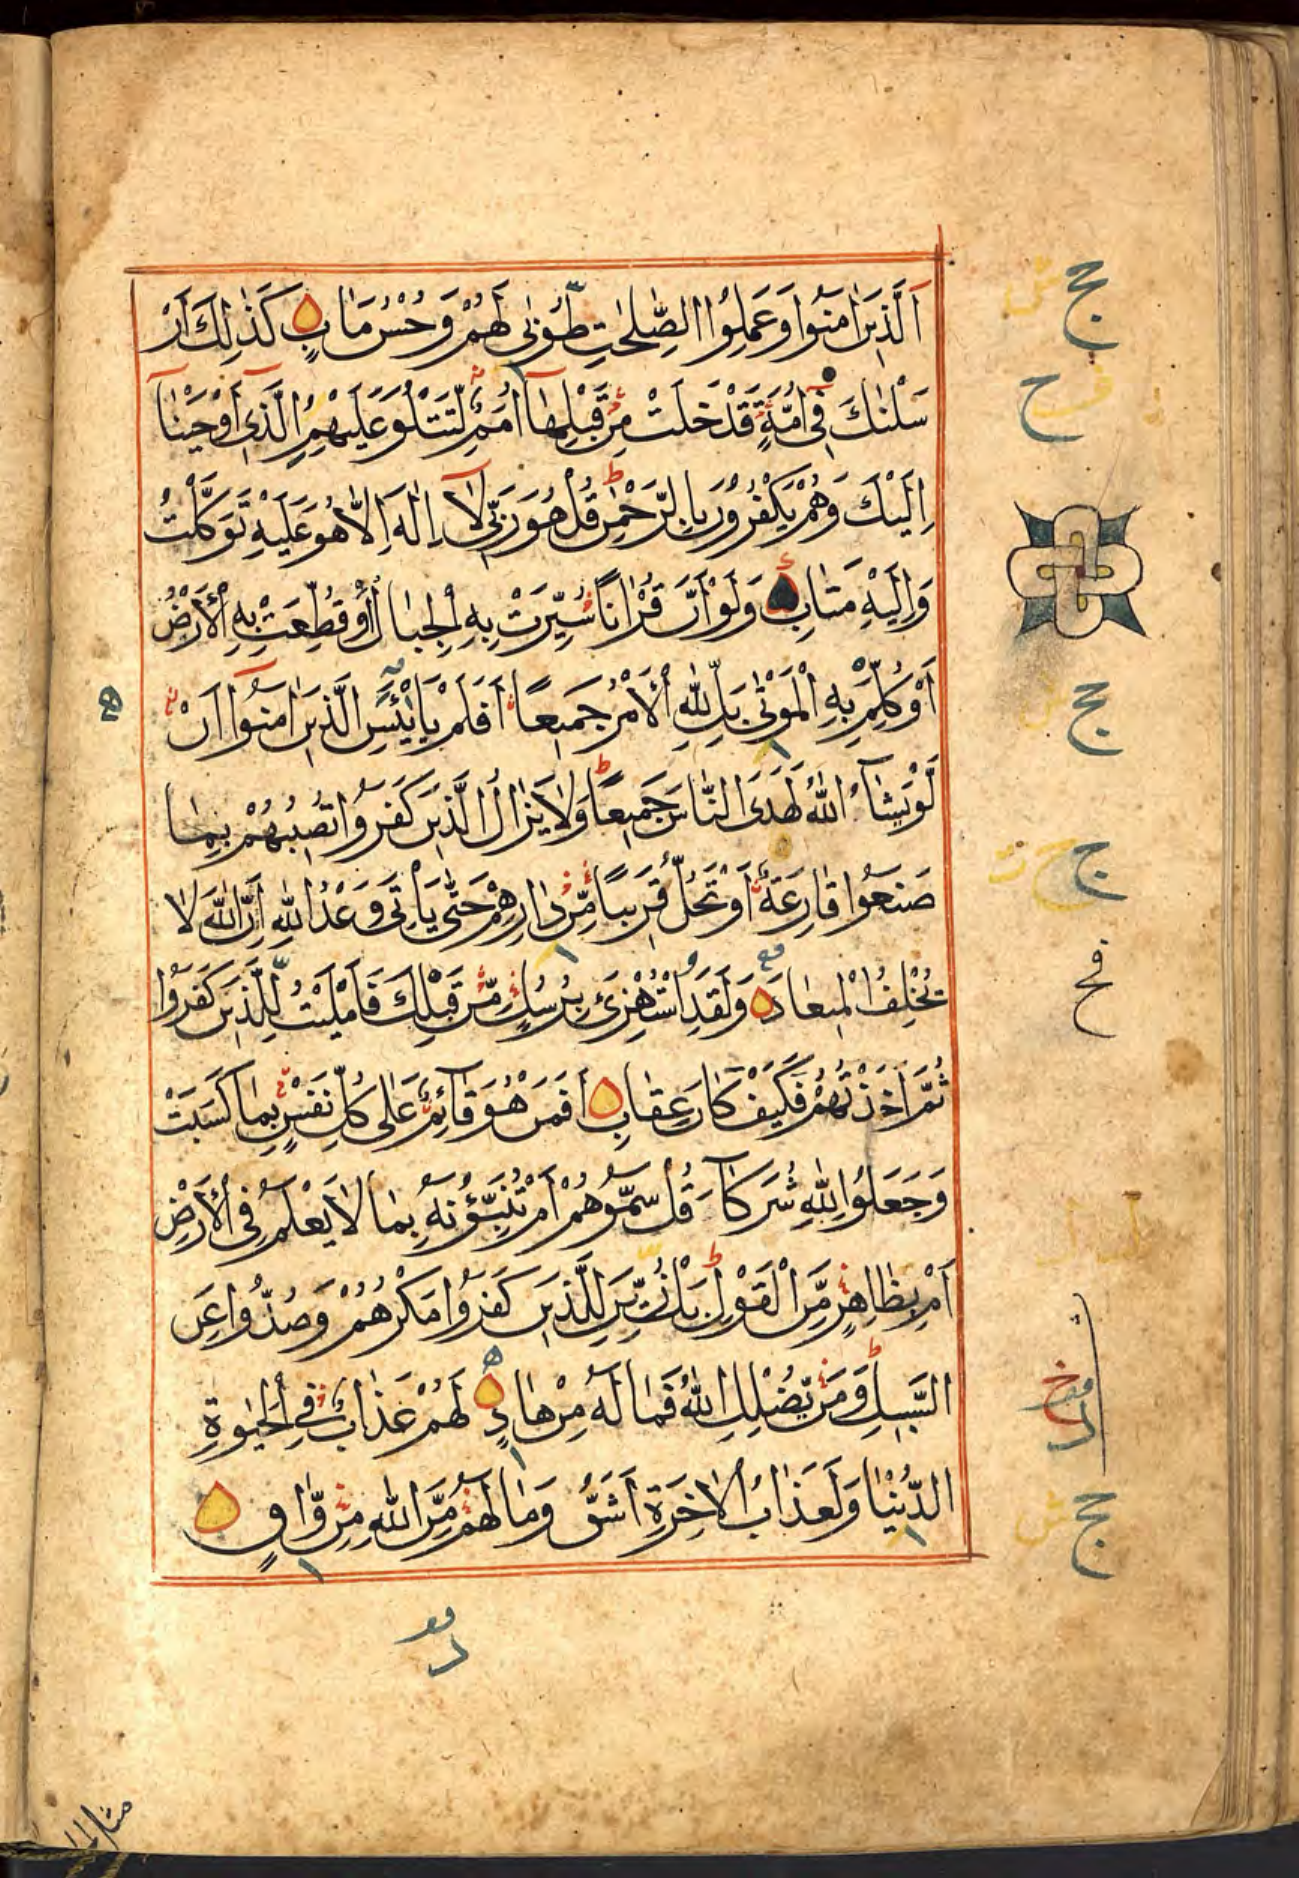 اَلَّذِينَ اٰمَنُوا وَعَمِلُوا الصّٰلِحٰتِ طُوْبٰى لَهُمْ وَحُسْنُ مَاٰبٍ كَذٰلِكَ اَرْ
سَلْنٰكَ فِى اُمَّةٍ قَدْ خَلَتْ مِنْ قَبْلِهَا اُمَمٌ لِّتَتْلُوَ عَلَيْهِمُ الَّذِى اَوْحَيْنَا
اِلَيْكَ وَهُمْ يَكْفُرُوْنَ بِالرَّحْمٰنِ قُلْ هُوَ رَبِّى لَا اِلٰهَ اِلَّا هُوَ عَلَيْهِ تَوَكَّلْتُ
وَاِلَيْهِ مَتَابِ وَلَوْ اَنَّ قُرْاٰنًا سُيِّرَتْ بِهِ الْجِبَالُ اَوْ قُطِّعَتْ بِهِ الْاَرْضُ
اَوْ كُلِّمَ بِهِ الْمَوْتٰى بَلْ لِّلّٰهِ الْاَمْرُ جَمِيعًا اَفَلَمْ يَايْـَٔسِ الَّذِينَ اٰمَنُوا اَنْ
لَّوْ يَشَآءُ اللّٰهُ لَهَدَى النَّاسَ جَمِيعًا وَلَا يَزَالُ الَّذِينَ كَفَرُوا تُصِيبُهُمْ بِمَا
صَنَعُوا قَارِعَةٌ اَوْ تَحُلُّ قَرِيبًا مِّنْ دَارِهِمْ حَتّٰى يَاْتِىَ وَعْدُ اللّٰهِ اِنَّ اللّٰهَ لَا
يُخْلِفُ الْمِيعَادَ وَلَقَدِ اسْتُهْزِئَ بِرُسُلٍ مِّنْ قَبْلِكَ فَاَمْلَيْتُ لِلَّذِينَ كَفَرُوا
ثُمَّ اَخَذْتُهُمْ فَكَيْفَ كَانَ عِقَابِ اَفَمَنْ هُوَ قَآئِمٌ عَلٰى كُلِّ نَفْسٍ بِمَا كَسَبَتْ
وَجَعَلُوا لِلّٰهِ شُرَكَآءَ قُلْ سَمُّوهُمْ اَمْ تُنَبِّـُٔونَهُ بِمَا لَا يَعْلَمُ فِى الْاَرْضِ
اَمْ بِظَاهِرٍ مِّنَ الْقَوْلِ بَلْ زُيِّنَ لِلَّذِينَ كَفَرُوا مَكْرُهُمْ وَصُدُّوا عَنِ
السَّبِيلِ وَمَنْ يُّضْلِلِ اللّٰهُ فَمَا لَهُ مِنْ هَادٍ لَهُمْ عَذَابٌ فِى الْحَيٰوةِ
الدُّنْيَا وَلَعَذَابُ الْاٰخِرَةِ اَشَقُّ وَمَا لَهُمْ مِّنَ اللّٰهِ مِنْ وَّاقٍ